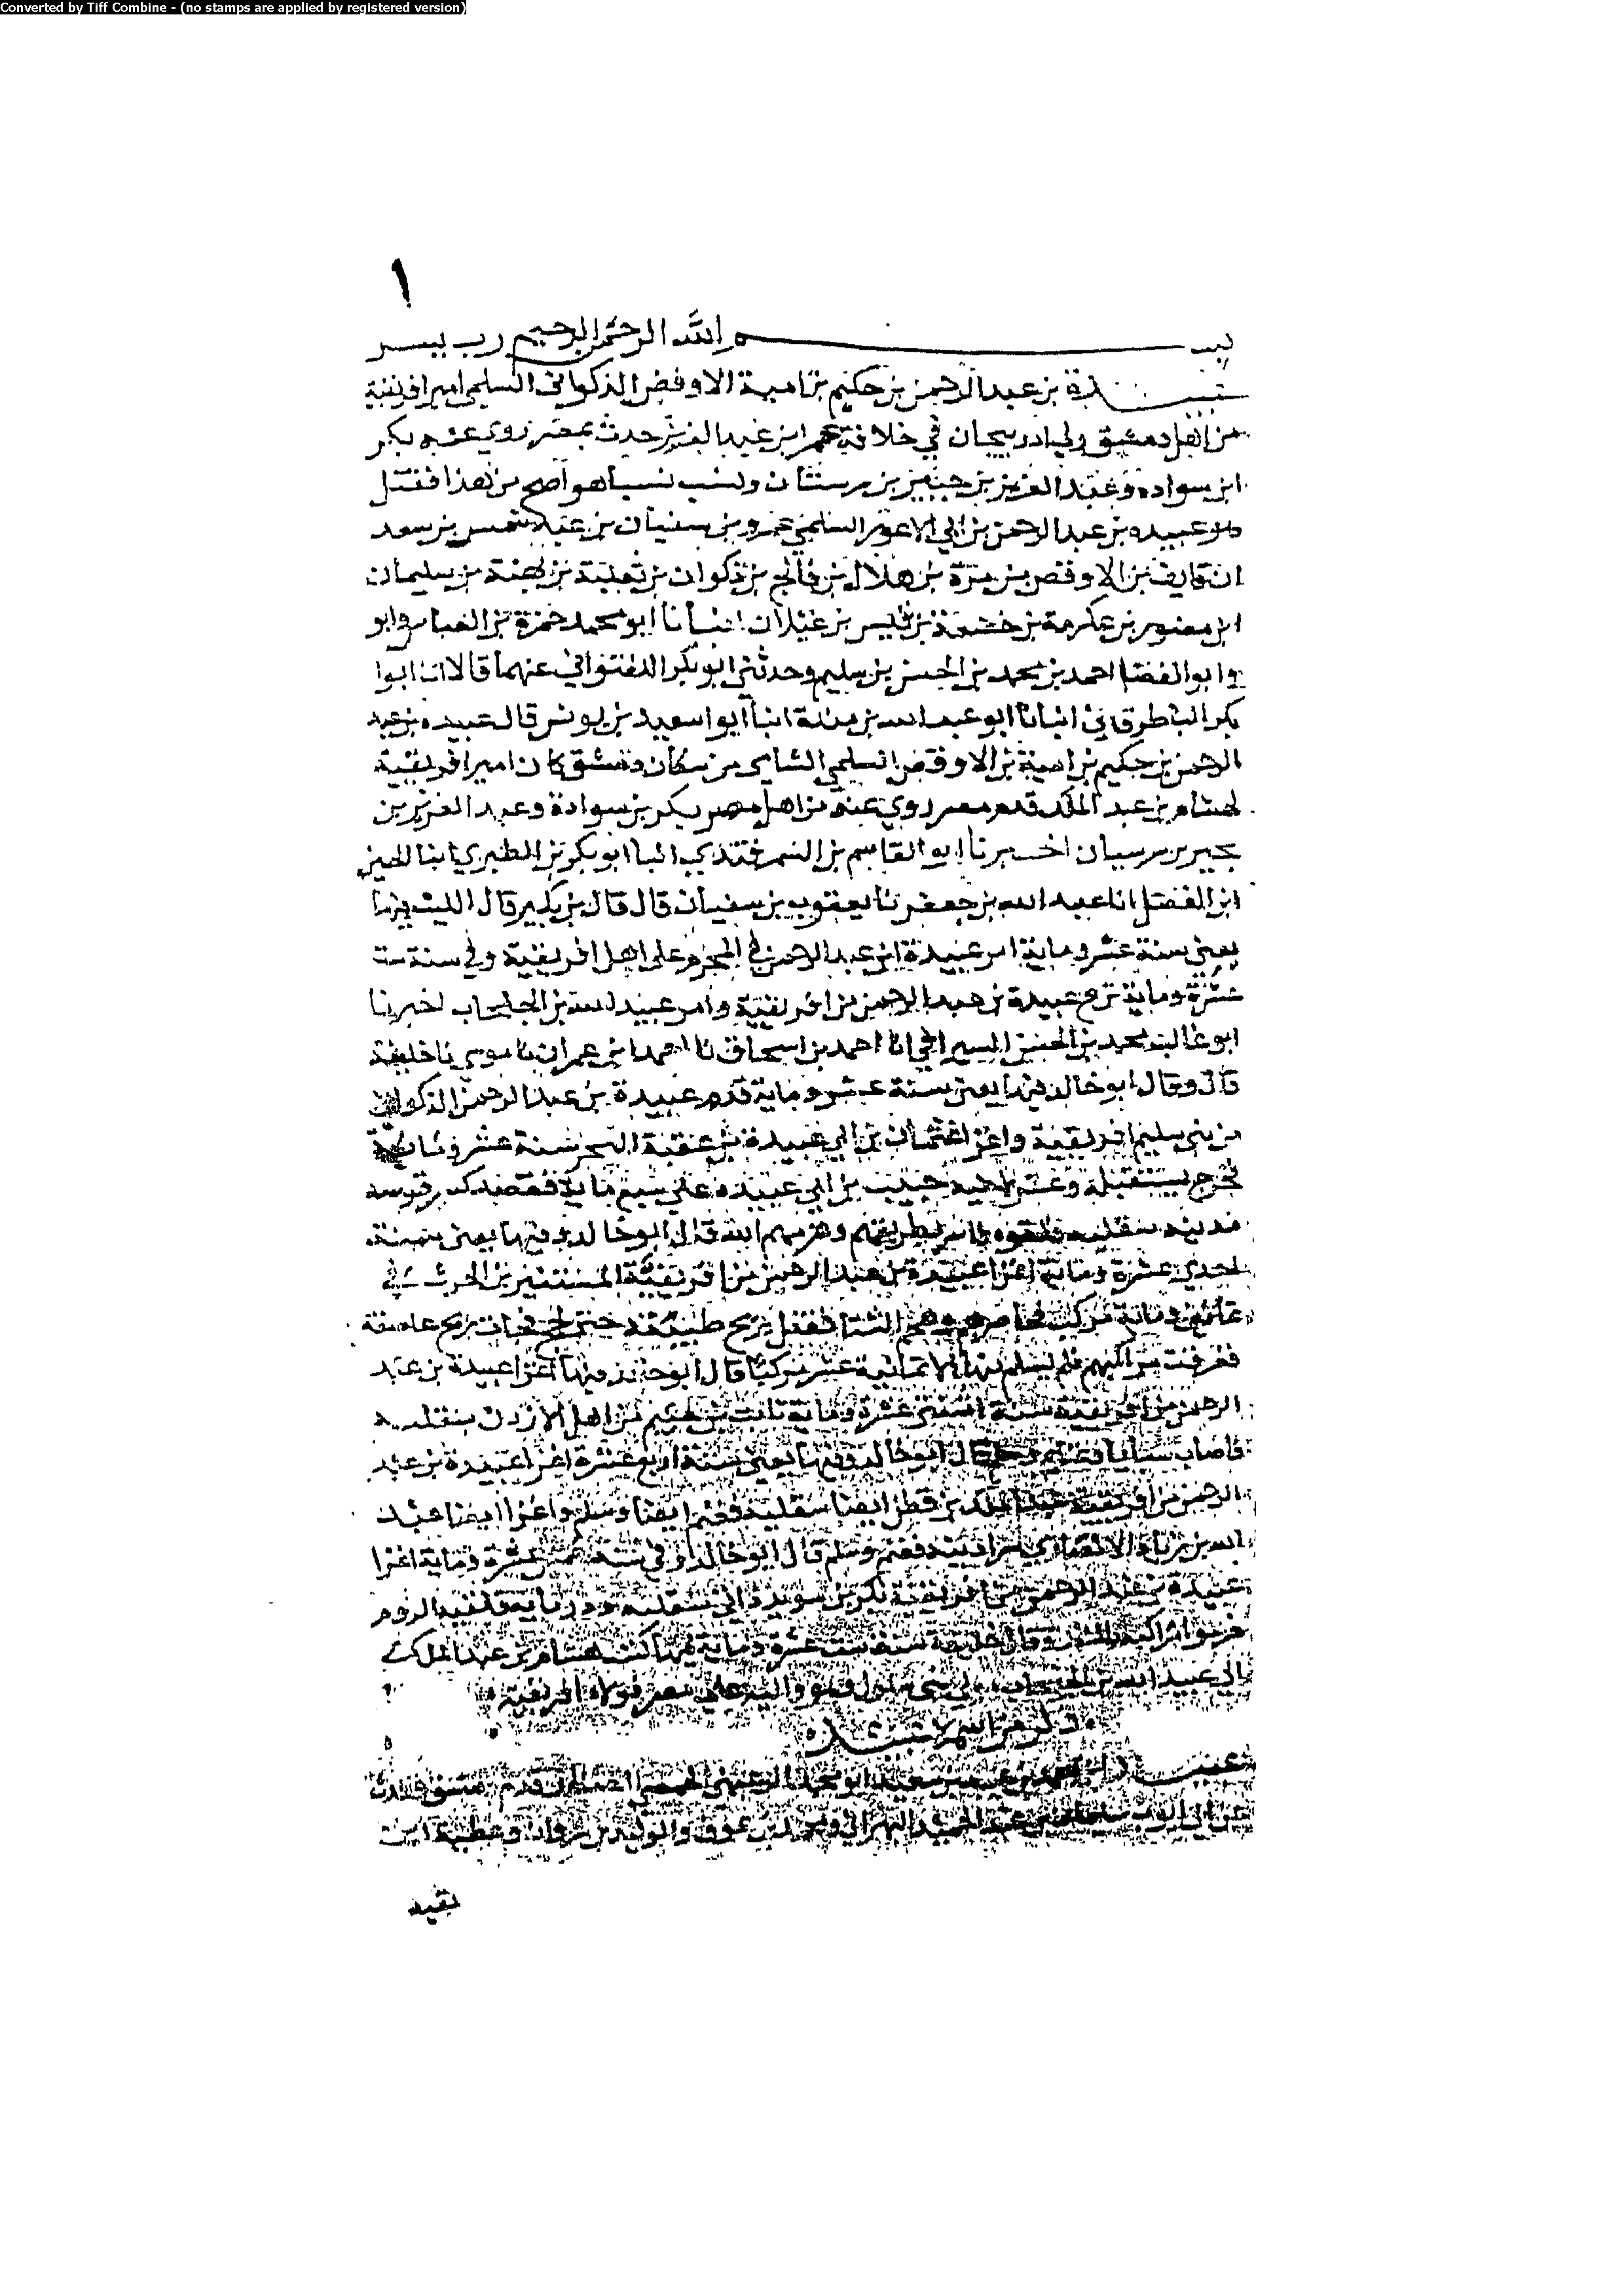 Converted by Tiff Combine - (no stamps are applied by registered version)
١
بسم الله الرحمن الرحيم رب يسر
عبيدة بن عبد الرحمن بن حكيم بن امية الاوقص الذكواني السلمي امير افريقية
من اهل دمشق ولي اذربيجان في خلافة عمر ابن عبد العزيز حدث بمصر روى عنه بكر
ابن سوادة وعبد العزيز بن ونسب نسبا هو اصح من هذا فقيل
هو عبيده بن عبد الرحمن بن ابي الاعور السلمي عمرو بن سفيان بن عبد شمس بن سعد
ابن قايف بن الاوقص بن مرة بن هلال بن فالج بن ذكوان بن ثعلبة بن بهثة بن سليمان
ابن منصور بن عكرمة بن خصفة بن قيس بن عيلان انبأنا ابو محمد حمزة بن العباس وابو
وابو الفضل احمد بن محمد بن الحسن بن سليم وحدثني ابو بكر اللفتواني عنهما قالا انا ابوا
بكر الباطرقاني انبانا ابو عبد الله بن مندة انبا ابوا سعيد بن يونس قال عبيده بن عبد
الرحمن بن حكيم بن امية بن الاوقص السلمي الشامي من سكان دمشق كان امير افريقية
لهشام بن عبد الملك قدم مصر روى عنه من اهل مصر بكر بن سوادة وعبد العزيز بن
اخبرنا ابو القاسم بن السمرقندي انبا ابو بكر بن الطبري ابنا الحسن
ابن الفضل انا عبد الله بن جعفر نا يعقوب بن سفيان قال قال بن بكير قال الليث فيها
يعني سنة عشر وماية امر عبيدة ابن عبد الرحمن في المحرم على اهل افريقية وفي سنة ست
عشرة وماية نزع عبيدة بن عبد الرحمن من افريقية وامر عبيد الله بن الحبحاب اخبرنا
ابو غالب محمد بن الحسن السيرافي انا احمد بن اسحاق نا احمد ابن عمران نا موسى نا خليفة
قال وقال ابو خالد فيها يعني سنة عشر وماية قدم عبيدة بن عبد الرحمن الذكواني
من بني سليم افريقية واغزا عثمان بن ابي عبيدة بن عقبة البحر سنة عشر وماية
سبع ماية
مدينة سقلية بطريقهم وهزمهم الله قال ابو خالد وفيها يعني سنة
احدى عشرة وماية اغزا عبيدة بن عبد الرحمن من افريقية المستنير بن الحرث في
وماية وهجم الشتا فقفل بريح طيبة حتى بريح عاصفة
فغرقت مراكبهم فلم يسلم منها الا ثمانية عشر مركبا قال ابو خالد فيها اغزا عبيدة بن عبد
الرحمن من افريقية سنة اثنتي عشرة وماية ثابت بن خيثم من اهل الاردن سقلية
فاصاب سبايا قال ابو خالد وفيها يعني سنة اربع عشرة اغزا عبيدة بن عبد
الرحمن من افريقية عبد الملك بن قطن ايضا سقلية فغنم ايضا وسلم واغزا ايضا عبد
الله بن زياد الانصاري سردانية فغنم وسلم قال ابو خالد وفي سنة خمس عشرة وماية اغزا
عبيدة بن عبد الرحمن من افريقية بكر بن سويد الى سقلية فلقيه الروم
وقال خليفة سنة ست عشرة وماية فيها كتب هشام بن عبد الملك
الى عبيد الله بن الحبحاب مولى بني سلول وهو واليه على مصر فولاه افريقية
ذكر من اسمه
ابو محمد الحمصي قدم دمشق
عن ابي ايوب سليمان بن عبد الحميد البهراني ومحمد بن عوف والوليد بن مروان وعطية ابن
بقية